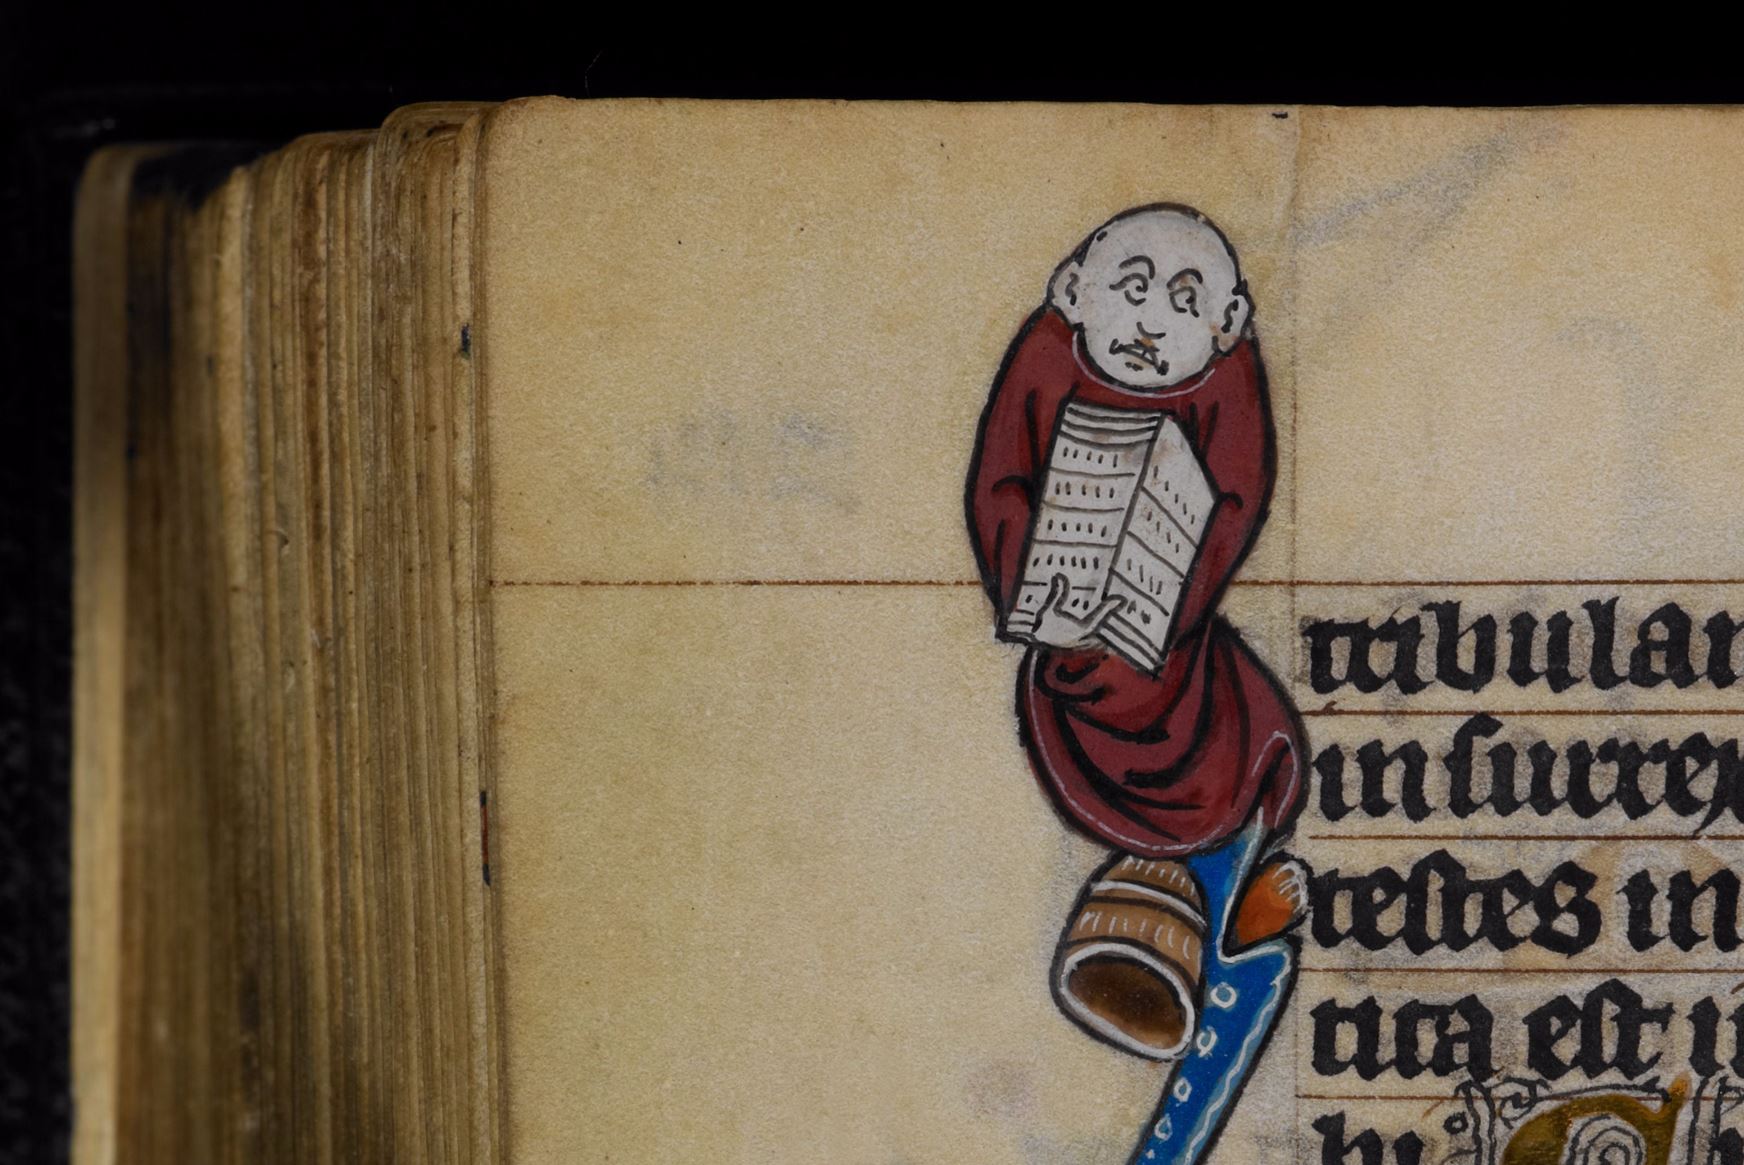 tribulan
in surrex
testes in
tita est i
hi